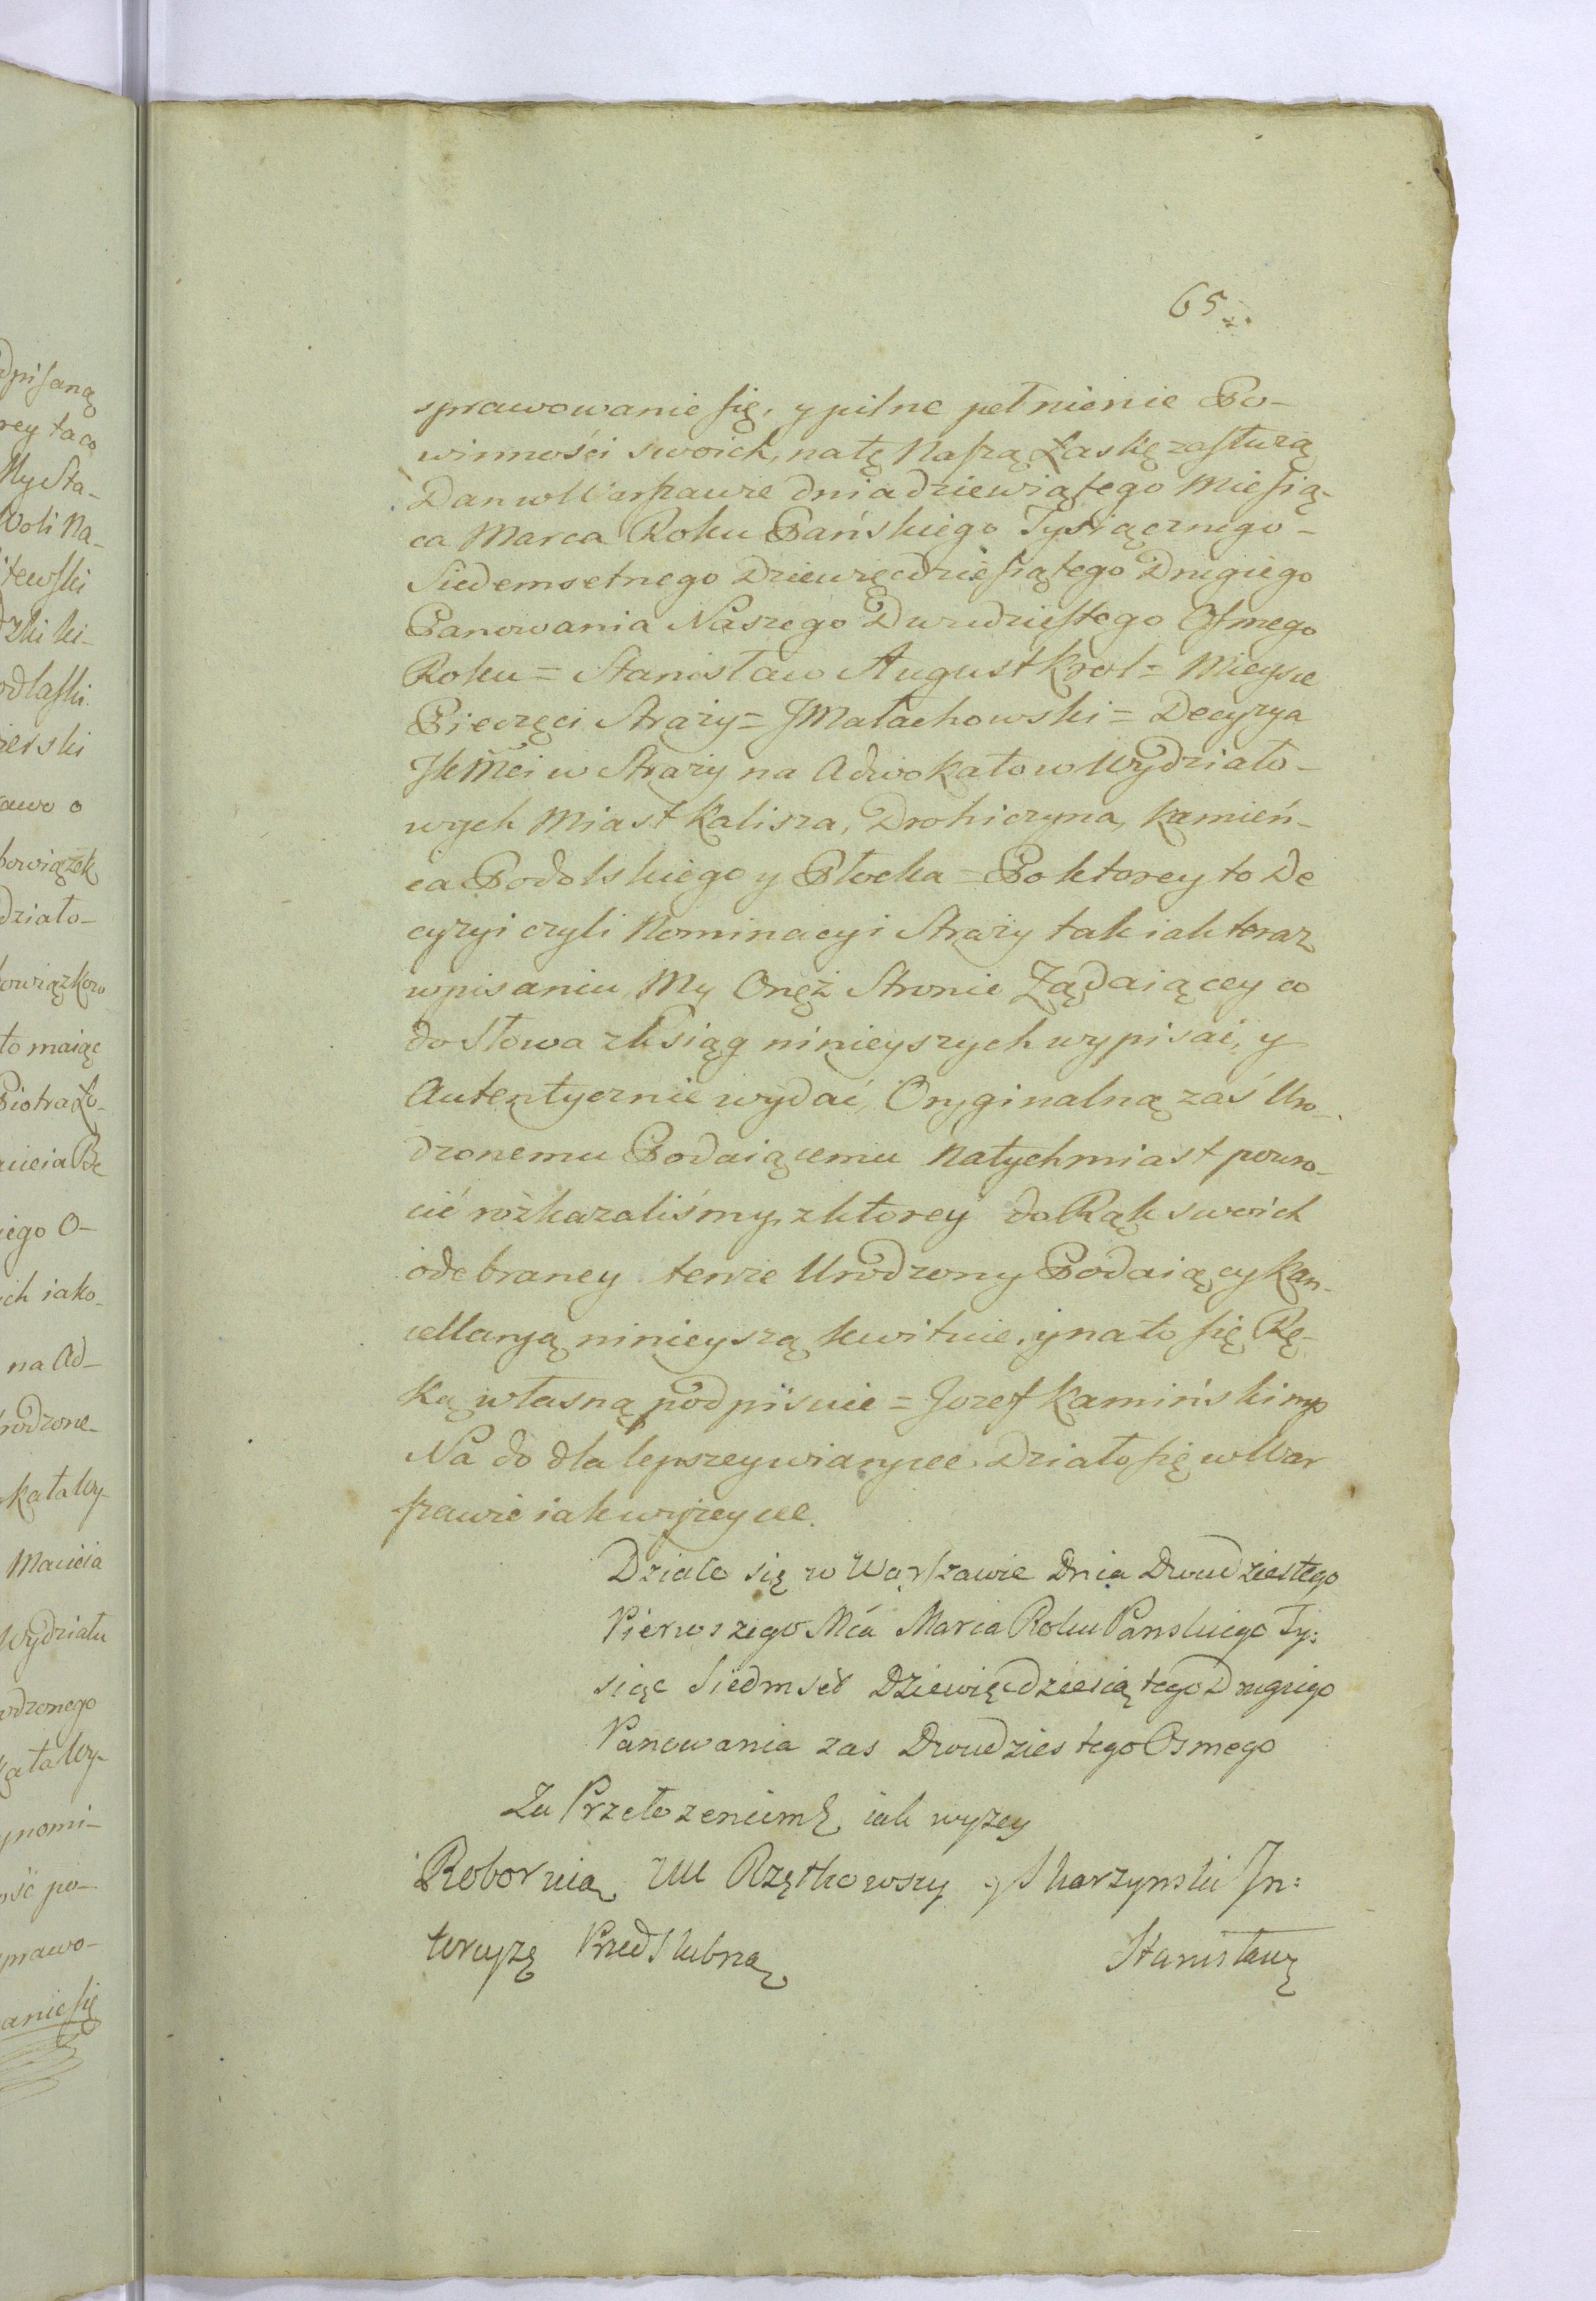 65
sprawowanie się, y pilne pełnienie Po-
winności swoich, natę Naszą Łaskę zasłużą
Dan w Warszawie dnia dziewiątego Miesią-
ca Marca Roku Pańskiego Tysiącznego-
Siedemsetnego Dziewięćdziesiątego Drugiego
Panowania Naszego Dwudziestego Osmego
Roku = Stanisław August Krol = Mieysce
Pieczęci Straży = JMałachowski = Decyzya
JKMci w Straży na Adwokatow Wydziało-
wych Miast Kalisza, Drohiczyna, Kamień-
ca Podolskiego y Płocka = Po ktorey to De
cyzyi czyli Nominacyi Straży tak iak teraz
wpisaniu, My Onęż Stronie Żądaiącey co
do Słowa z Ksiąg ninieyszych wypisać, y
Autentycznie wydać, Oryginalną zaś Uro-
dzonemu Podaiącemu Natychmiast powro-
cić rozkazaliśmy, z ktorey do Rąk swoich
odebraney tenże Urodzony Podaiący Kan-
cellaryą ninieyszą kwituie, y na to się Rę-
ką własną podpisuie = Jozef Kamiński mp
Na do dla lepszey wiary ece. Działo się w War
szawie iak wyżey ece.
Działo się w Warszawie Dnia Dwudziestego
Pierwszego Mca Marca Roku Panskiego Ty:
siąc Siedmset Dziewięcdziesiątego Drugiego
Panowania zas Dwudziestego Osmego
Za Przełozeniem iak wyzey
Roboruią UU Rzętkowscy y Skarzynski In:
tercyzę Przed Slubną
Stanisław
dpisaną
rey ta co
My Sta-
Woli Na-
itewski
dzki ki-
odlaski
ierski
awo o
bowiązek
działo-
owiązkow
to maiąc
Piotra Ło-
iego O-
ich iako-
na Ad-
rodzone-
kata Wy-
Macieia
Wydziału
odzonego
kata Wy-
ynomi-
ość po-
prawo-
anie się